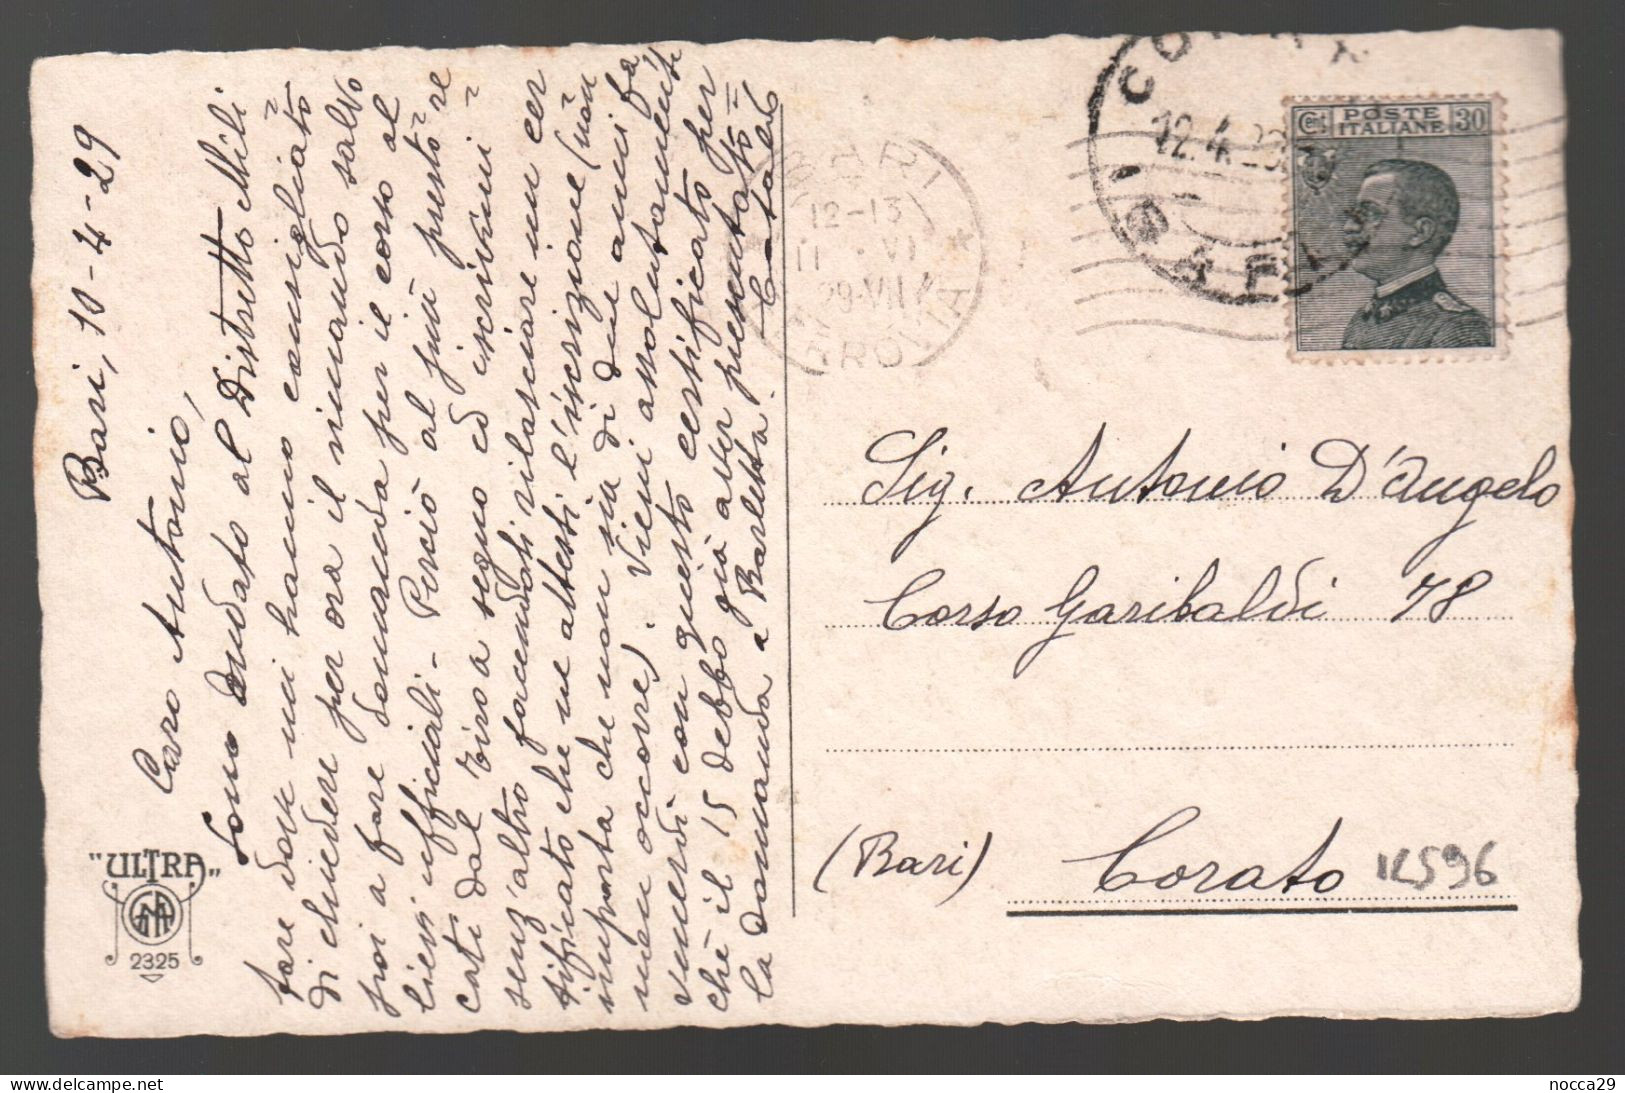 Bari, 10-4-29
Caro Antonio,
Sono andato al Distretto Mili
tare dove mi hanno consigliato
di chiedere per ora il rimando salvo
poi a fare domanda per il corso al
lievi ufficiali - Perciò al più presto re
cati dal Tiro a segno ed iscrivini -
senz'altro facendoti rilasciare un cer
tificato che ne attesti l'iscrizione (non
importa che non sia di due anni fa
non occorre). Vieni assolutamente
venerdì con questo certificato per
chè il 15 debbo già aver presentato -
la domanda a Barletta.
"ULTRA"
2325
BARI
12-13
11 VI
29-VII
FERROVIA
CORATO
12.4.29
BARI
POSTE
ITALIANE
Cent
30
Sig. Antonio D'Angelo
Corso Garibaldi 78
(Bari) Corato
12596
nocca29